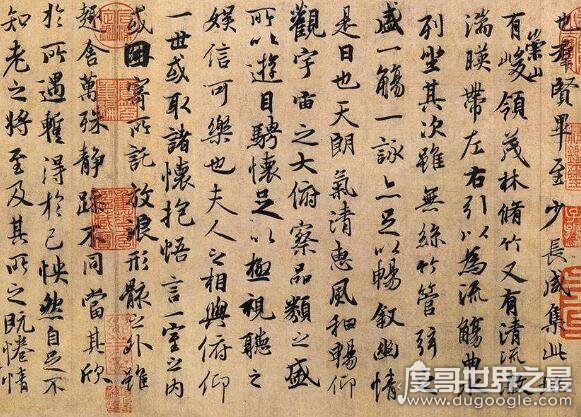 也羣賢畢至少長咸集此
有崇山峻領茂林脩竹又有清流
湍暎帶左右引以為流觴曲
列坐其次雖無絲竹管弦
盛一觴一詠亦足以暢叙幽情
是日也天朗氣清惠風和暢仰
觀宇宙之大俯察品類之盛
所以遊目騁懷足以極視聽之
娛信可樂也夫人之相與俯仰
一世或取諸懷抱悟言一室之內
或因寄所託放浪形骸之外雖
趣舍萬殊静躁不同當其欣
於所遇暫得於己怏然自足不
知老之將至及其所之既惓情
度哥世界之最
www.dugoogle.com